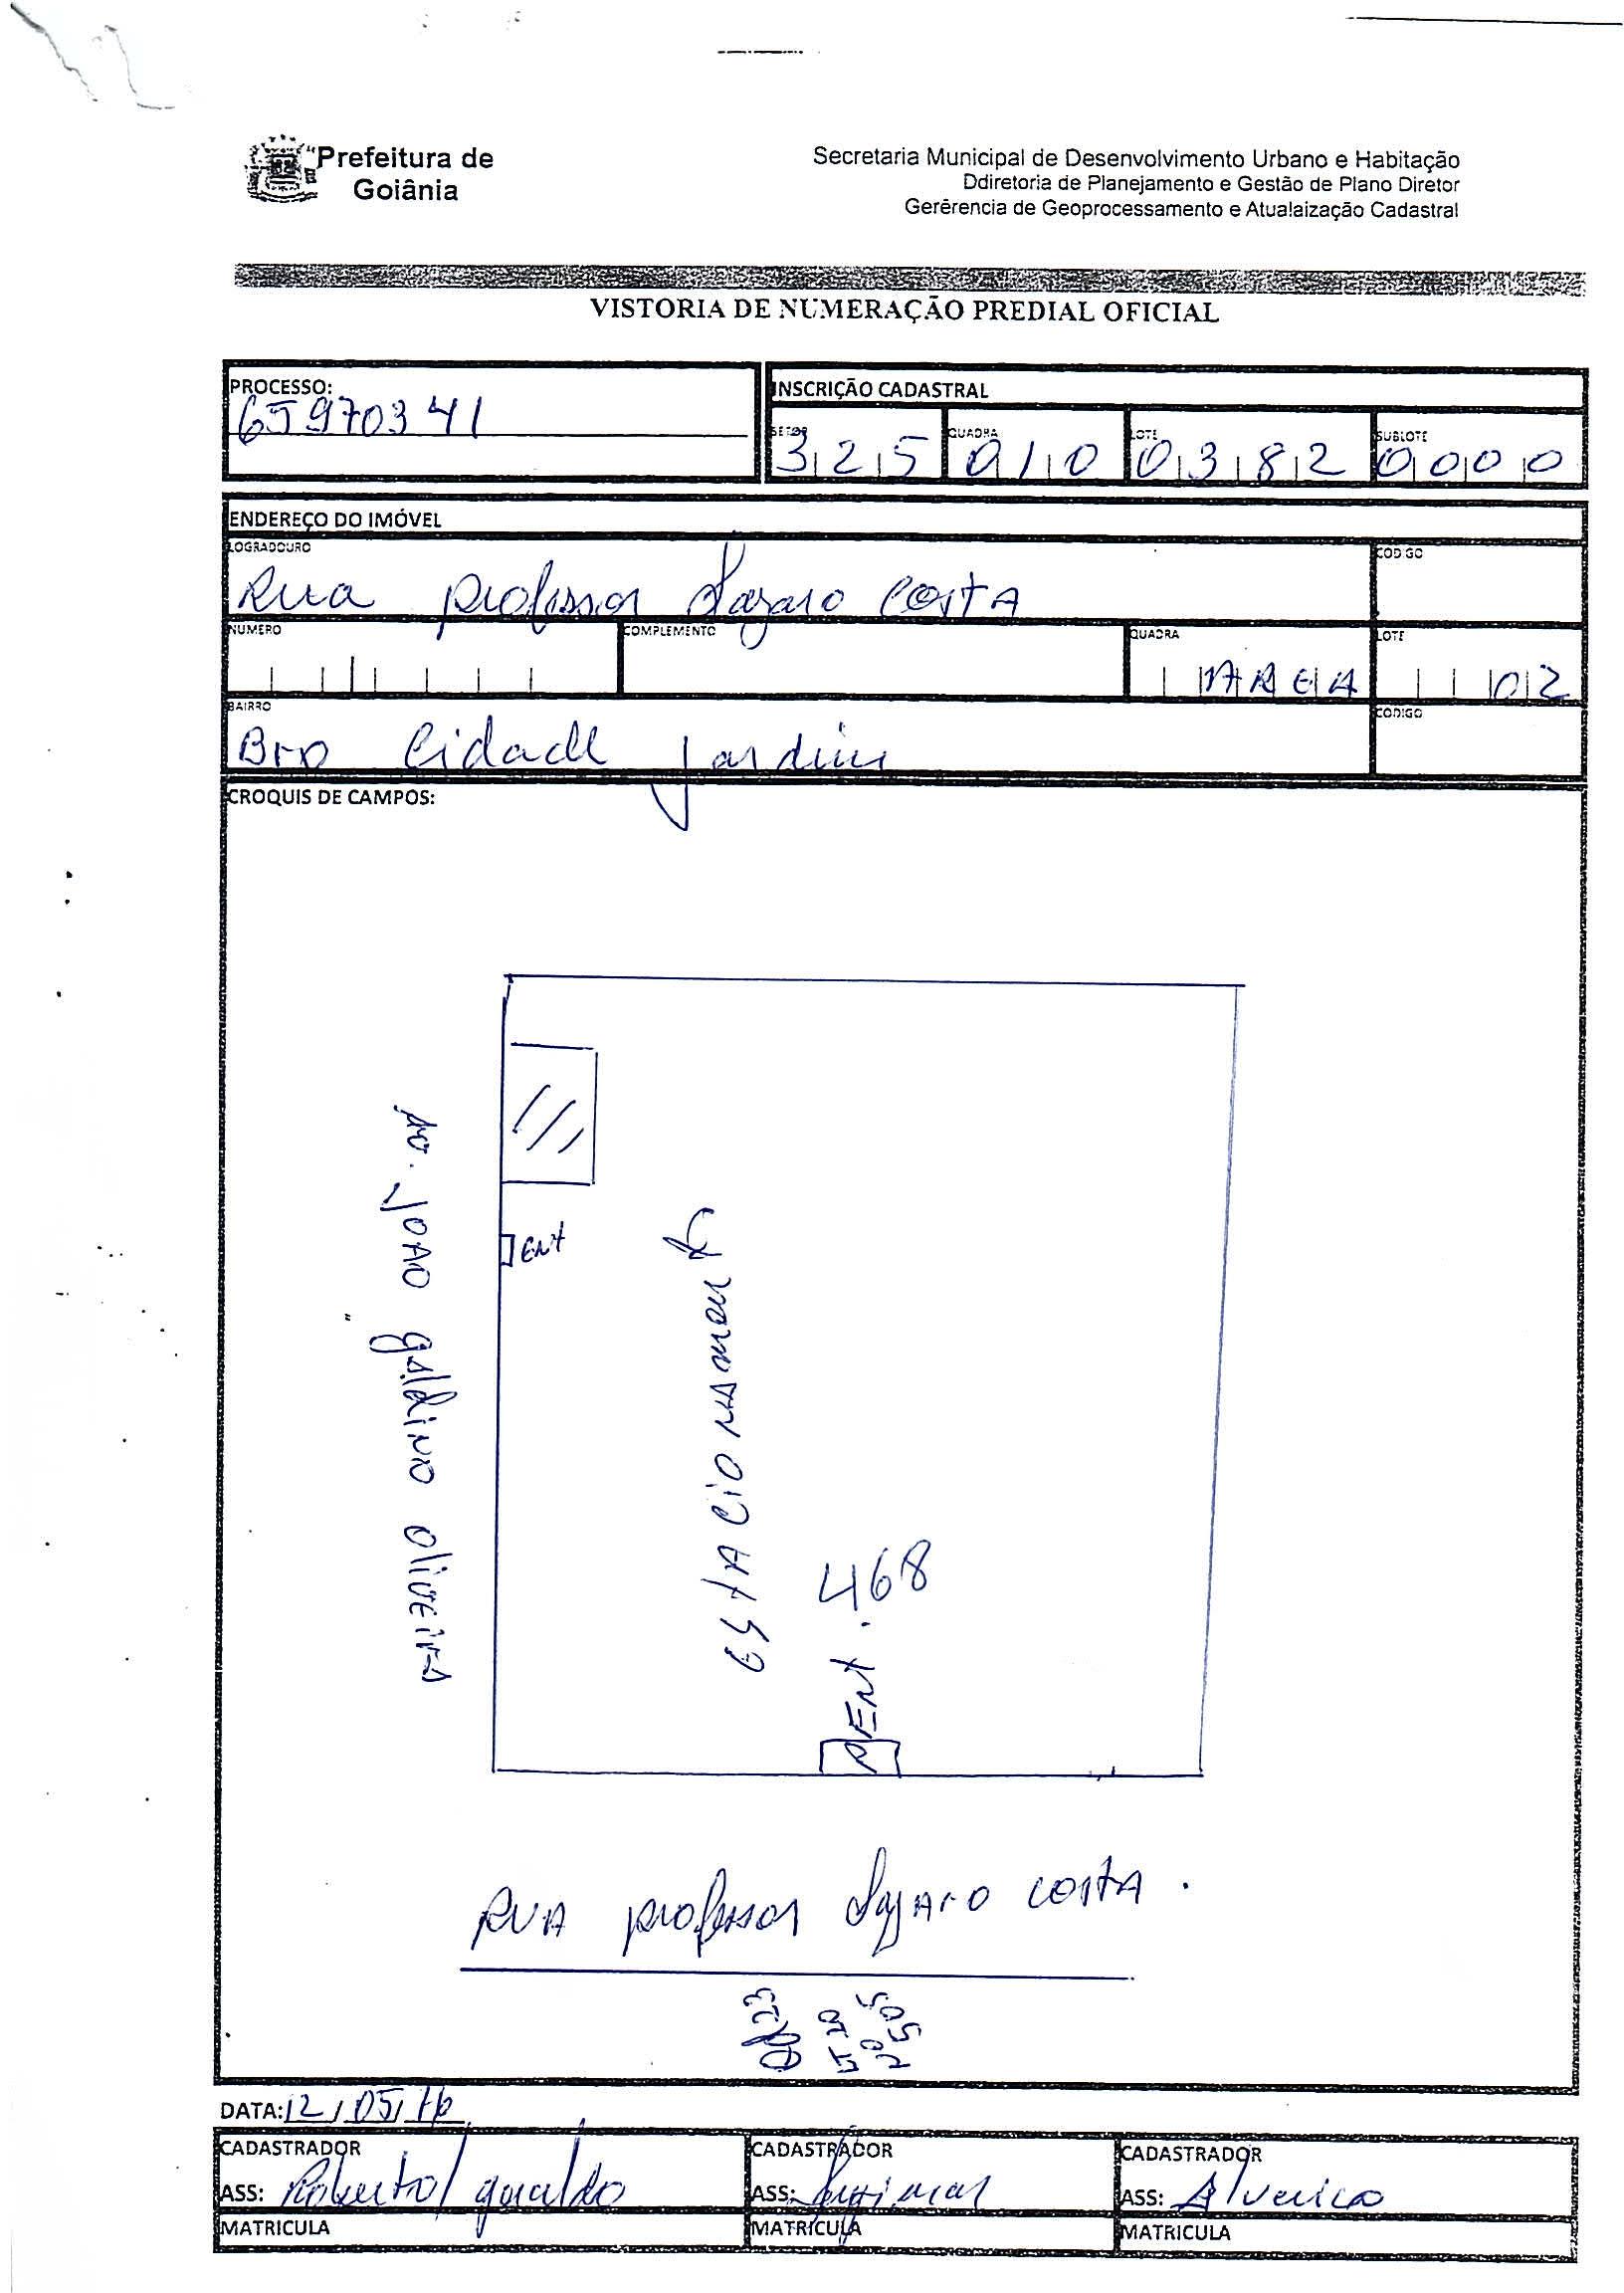 Prefeitura de
Goiânia
Secretaria Municipal de Desenvolvimento Urbano e Habitação
Ddiretoria de Planejamento e Gestão de Plano Diretor
Gerêrencia de Geoprocessamento e Atualaização Cadastral
VISTORIA DE NUMERAÇÃO PREDIAL OFICIAL
PROCESSO:
65970341
INSCRIÇÃO CADASTRAL
SETOR QUADRA LOTE SUBLOTE
325 010 0382 0000
ENDEREÇO DO IMÓVEL
LOGRADOURO CODIGO
Rua professor Lazaro COSTA
NUMERO COMPLEMENTO QUADRA LOTE
AREA 02
BAIRRO CODIGO
Bro Cidade Jardim
CROQUIS DE CAMPOS:
Av. JOAO galdino oliveira
ENt
EStACiONAmento
ENt. 468
RUA professor Lazaro COSTA.
Qd 23
LT 20
Nº 505
DATA: 12/05/16
CADASTRADOR CADASTRADOR CADASTRADOR
ASS: Roberto/geraldo ASS: ASS:
MATRICULA MATRICULA MATRICULA